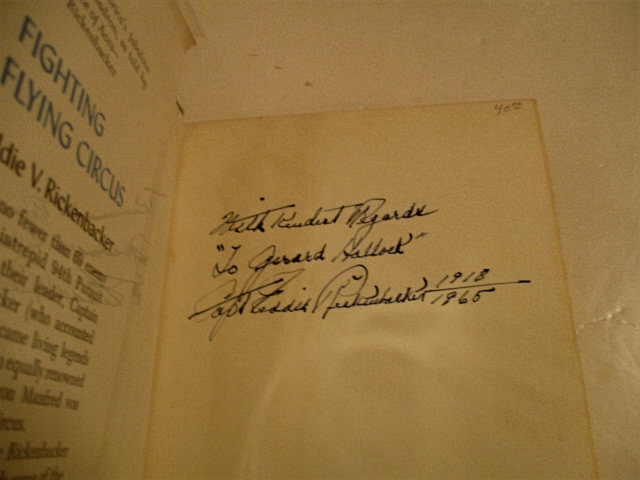 as told by
Rickenbacker
FIGHTING
FLYING CIRCUS
ddie V. Rickenbacker
no fewer than 69 enemy
intrepid 94th Pursuit
their leader, Captain
cker (who accounted
came living legends
equally renowned
on Manfred von
ircus.
Rickenbacker
of the
40.00
With Kindest Regards
"To Gerard Hallock"
Capt Eddie Rickenbacker 1918
1965